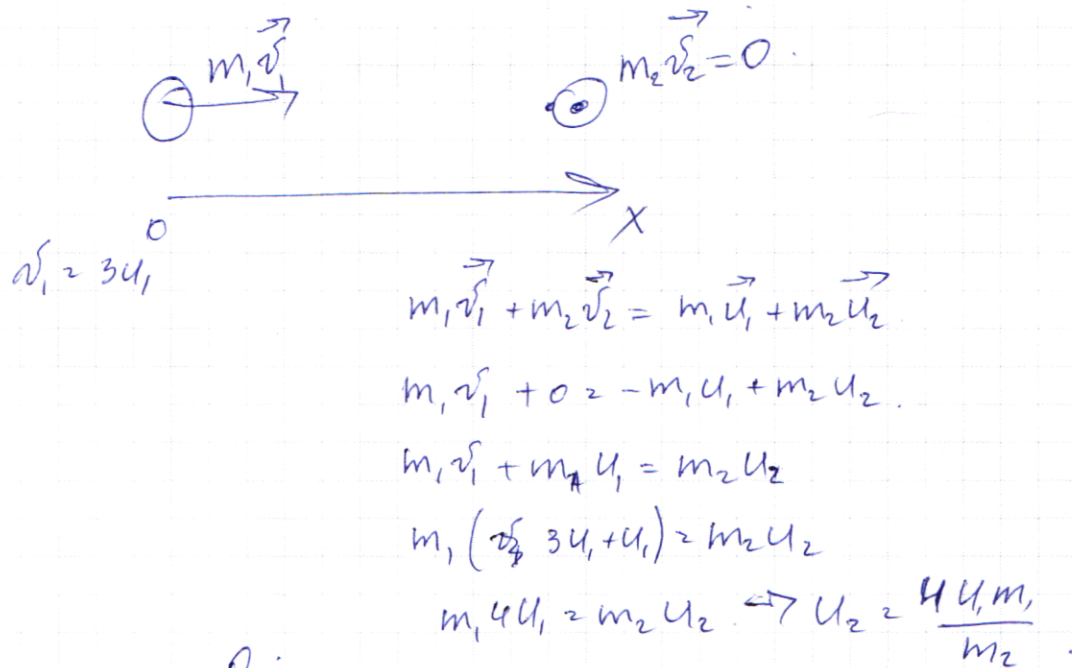 m₁v⃗₁
m₂v⃗₂ = 0
0 X
v₁ = 3u₁
m₁v⃗₁ + m₂v⃗₂ = m₁u⃗₁ + m₂u⃗₂
m₁v₁ + 0 = -m₁u₁ + m₂u₂.
m₁v₁ + m₁u₁ = m₂u₂
m₁(3u₁ + u₁) = m₂u₂
m₁4u₁ = m₂u₂ → u₂ = 4u₁m₁/m₂